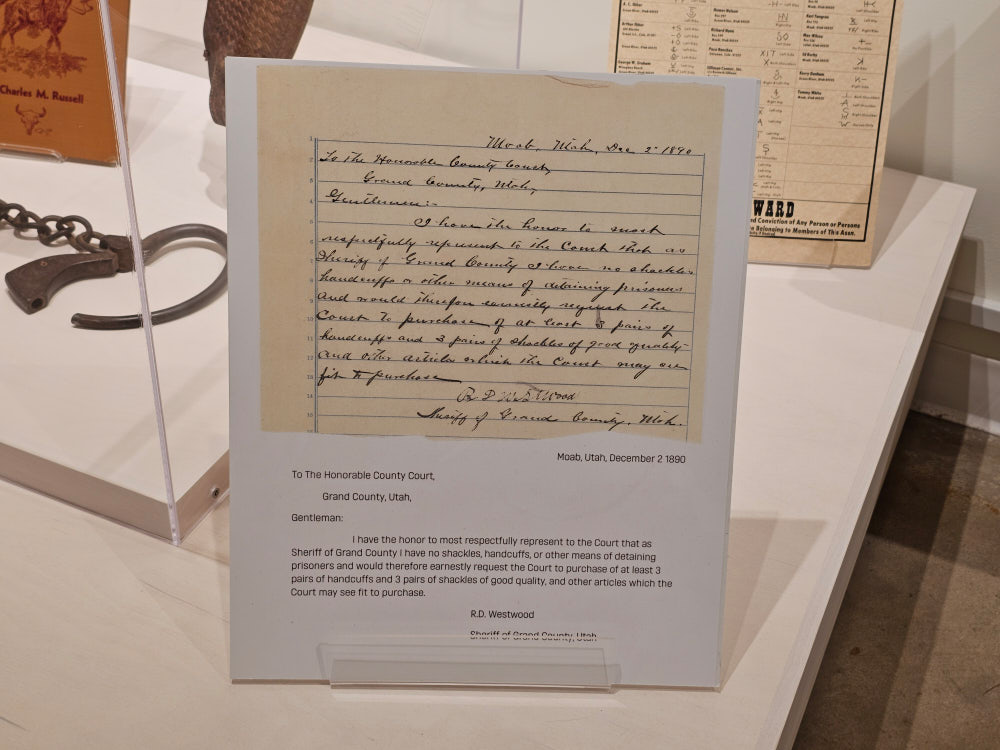 Charles M. Russell
Moab, Utah, Dec 2 1890
To The Honorable County Court,
Grand County, Utah,
Gentlemen:-
I have the honor to most
respectfully represent to the Court that as
Sheriff of Grand County I have no shackles
handcuffs or other means of detaining prisoners
and would therefore earnestly request the
Court to purchase of at least 3 pairs of
handcuffs and 3 pairs of shackles of good quality
and other articles which the Court may see
fit to purchase
R D Westwood
Sheriff of Grand County, Utah.
Moab, Utah, December 2 1890
To The Honorable County Court,
Grand County, Utah,
Gentleman:
I have the honor to most respectfully represent to the Court that as
Sheriff of Grand County I have no shackles, handcuffs, or other means of detaining
prisoners and would therefore earnestly request the Court to purchase of at least 3
pairs of handcuffs and 3 pairs of shackles of good quality, and other articles which the
Court may see fit to purchase.
R.D. Westwood
Sheriff of Grand County, Utah
WARD
nd Conviction of Any Person or Persons
Belonging to Members of This Assn.